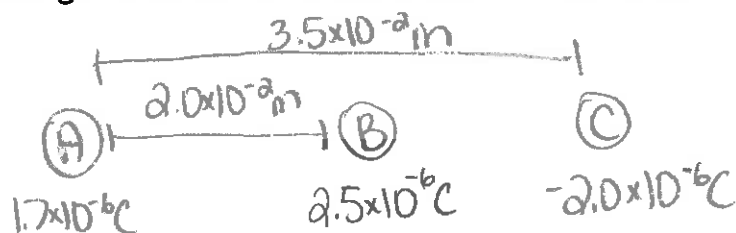 3.5x10⁻²m
2.0x10⁻²m
A B C
1.7x10⁻⁶C 2.5x10⁻⁶C -2.0x10⁻⁶C